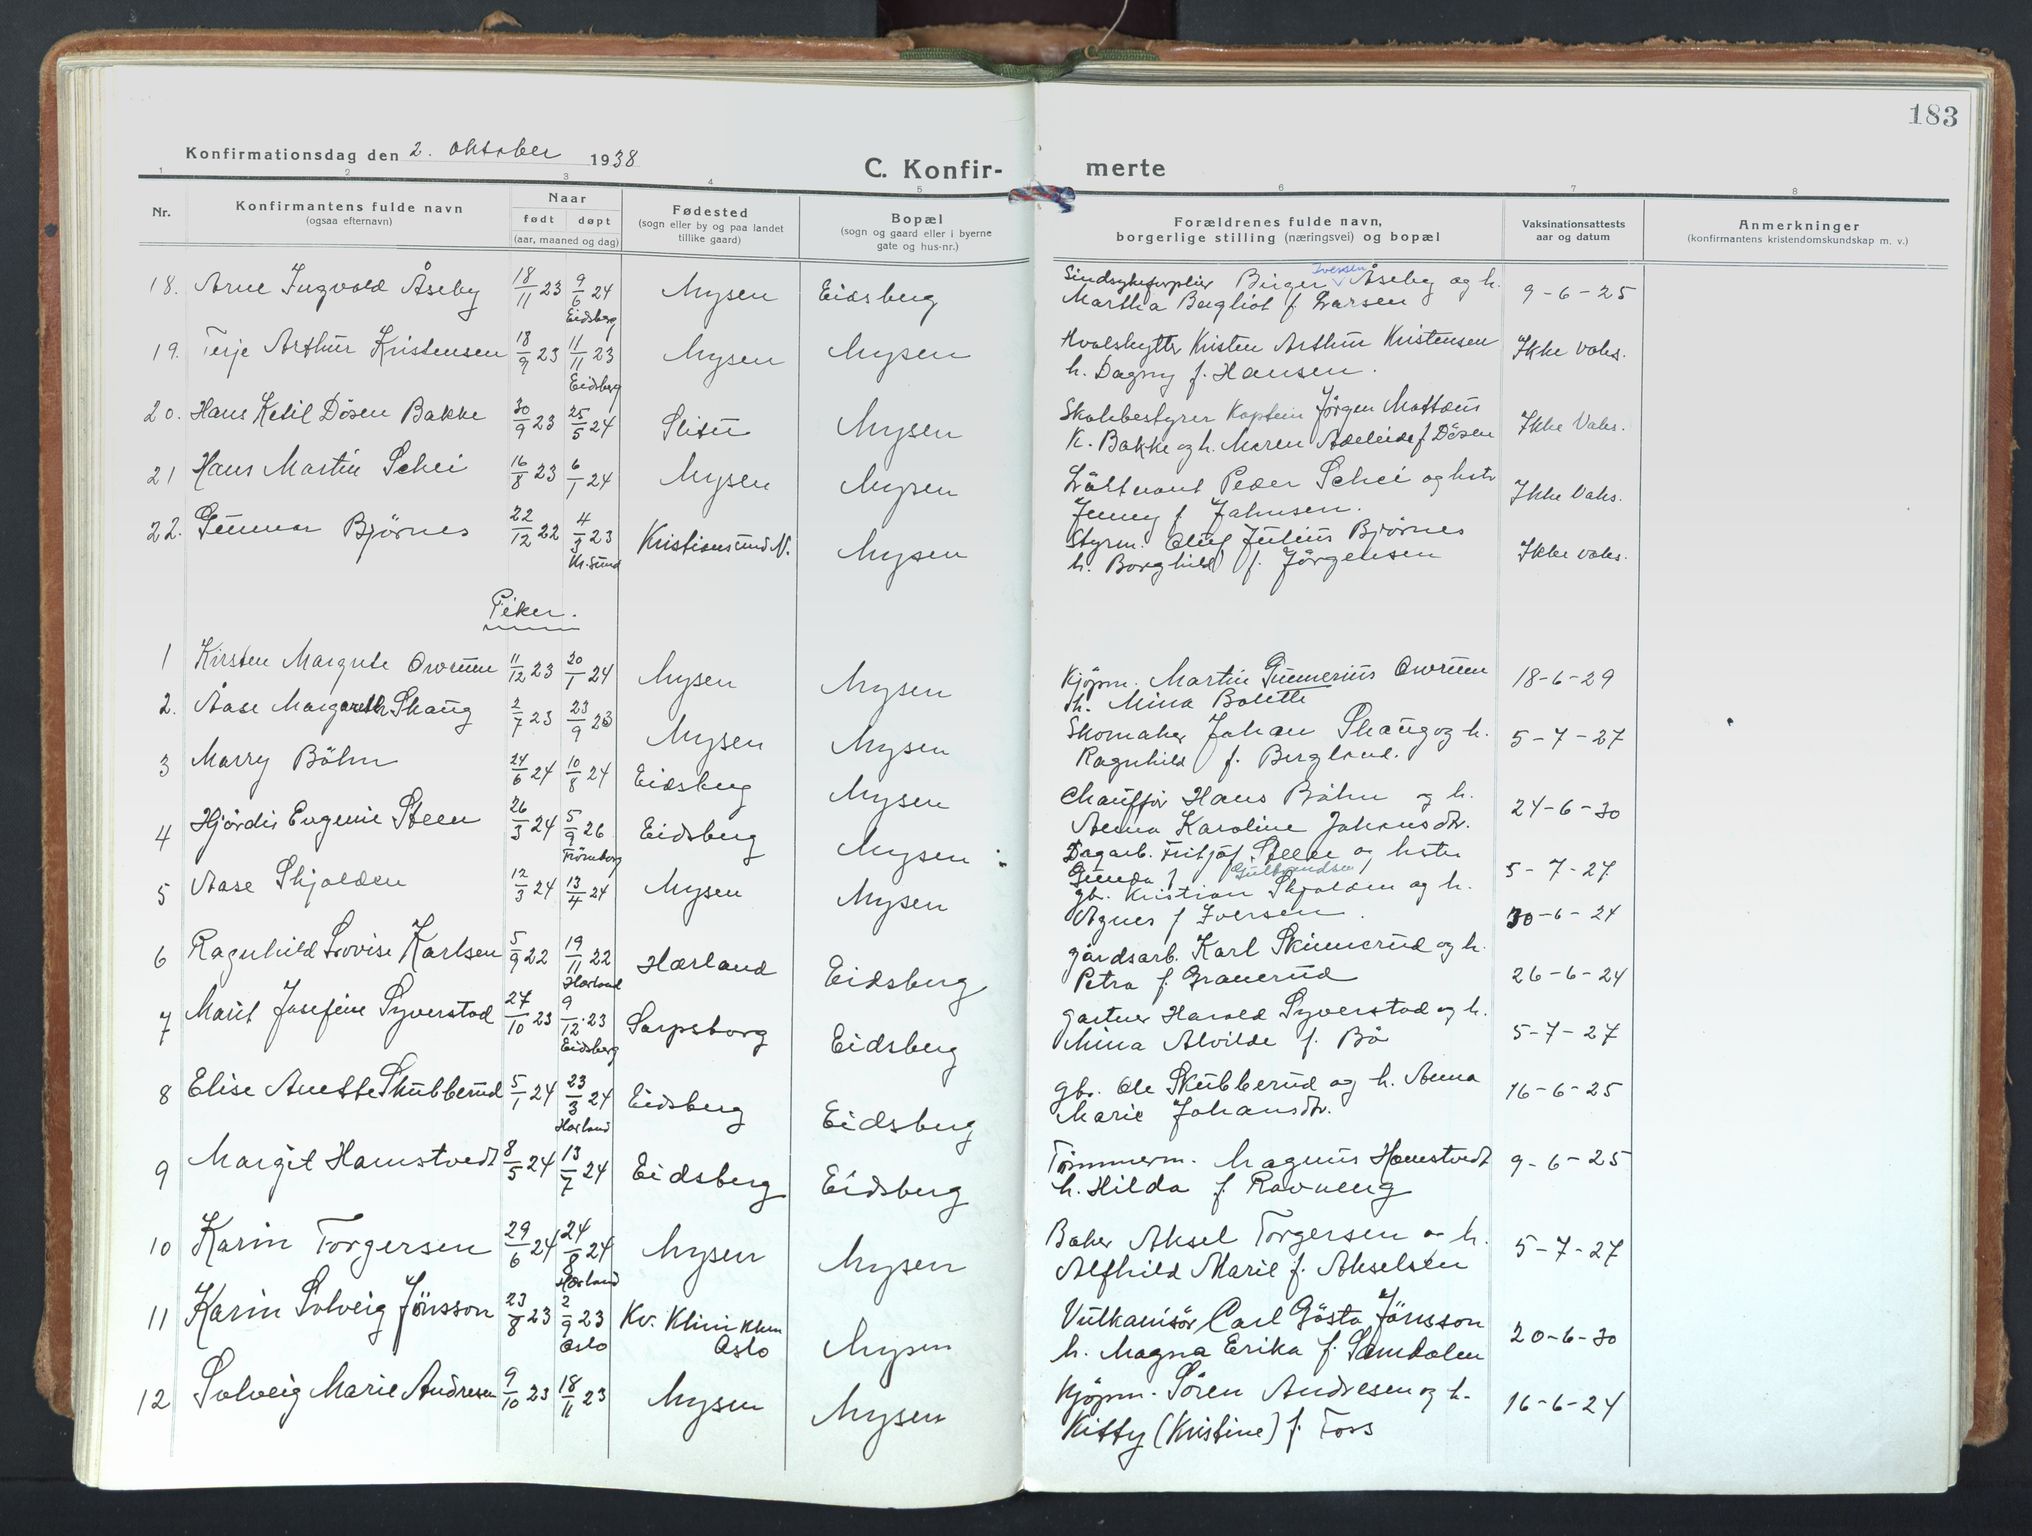 183
Konfirmationsdag den 2. oktober 1938
C. Konfir- merte
1 2 3 4 5 6 7 8
Nr.
Konfirmantens fulde navn
(ogsaa efternavn)
Naar
født døpt
(aar, maaned og dag)
Fødested
(sogn eller by og paa landet
tillike gaard)
Bopæl
(sogn og gaard eller i byerne
gate og hus-nr.)
Forældrenes fulde navn,
borgerlige stilling (næringsvei) og bopæl
Vaksinationsattests
aar og datum
Anmerkninger
(konfirmantens kristendomskundskap m. v.)
18. Arne Ingvald Åseby 18/11 23 9/6 24 Eidsberg Mysen Eidsberg Sindsykepleier Birger Iversen Åseby og h.
Martha Bergliot f. Larsen 9-6-25
19. Terje Arthur Kristensen 18/9 23 11/11 23 Eidsberg Mysen Mysen Hvalskytter Kristen Arthur Kristensen
h. Dagny f. Hansen. Ikke vaks.
20. Hans Ketil Døsen Bakke 30/9 23 25/5 24 Slitu Mysen Skolebestyrer Kaptein Jørgen Mattæus
K. Bakke og h. Maren Adeleide f Døsen Ikke Vaks.
21 Hans Martin Schei 16/8 23 6/1 24 Mysen Mysen Løitnant Peder Schei og hstr
Jenny f. Jahnsen. Ikke Vaks.
22. Gunnar Bjørnes 22/12 22 4/3 23 Kr.sund Kristiansund N. Mysen Styrm. Oluf Julius Bjørnes
h. Borghild f. Jørgensen Ikke vaks.
Piker.
1 Kirsten Margrete Ovrum 11/12 23 20/1 24 Mysen Mysen Kjøpm. Martin Gunnerius Ovrum
h. Mina Bolette 18-6-29
2. Åase Margareth Skaug 2/7 23 23/9 23 Mysen Mysen Skomaker Johan Skaug og h.
Ragnhild f. Bergland. 5-7-27
3 Marry Bøhn 24/6 24 10/8 24 Eidsberg Mysen Chauffør Hans Bøhn og h.
Anna Karoline Johansdtr. 24-6-30
4 Hjørdis Eugenie Steen 26/3 24 5/9 26 Trømborg Eidsberg Mysen Dagarb. Fritjof Steen og hstr
Gunda f Gulbrandsen 5-7-27
5 Aase Skjolden 12/3 24 13/4 24 Mysen Mysen gb. Kristian Skjolden og h.
Agnes f Iversen. 30-6-24
6 Ragnhild Lovise Karlsen 5/9 22 19/11 22 Hærland Hærland Eidsberg gårdsarb. Karl Skinnerud og h.
Petra f. Granerud 26-6-24
7 Marit Josefine Syverstad 27/10 23 9/12 23 Eidsberg Sarpsborg Eidsberg gartner Harald Syverstad og h.
Mina Alvilde f. Bø 5-7-27
8 Elise Anette Skubberud 5/1 24 23/3 24 Hærland Eidsberg Eidsberg gbr. Ole Skubberud og h. Anna
Marie Johansdtr. 16-6-25
9 Margit Hamstvedt 8/5 24 13/7 24 Eidsberg Eidsberg Tømmerm. Magnus Hamstvedt
h. Hilda f. Ravneng 9-6-25
10 Karin Torgersen 29/6 24 24/8 24 Hærland Mysen Mysen Baker Aksel Torgersen o h.
Alfhild Marie f. Akselsen 5-7-27
11 Karin Solveig Jönsson 23/8 23 2/9 23 Oslo Kv. Klinikken
Oslo Mysen Vulkanisør Carl Gösta Jönsson
h. Magna Erika f. Samdalen 20-6-30
12 Solveig Marie Andresen 9/10 23 18/11 23 Mysen Mysen Kjøpm. Sören Andresen og h.
Kitty (Kristine) f. Foss 16-6-24